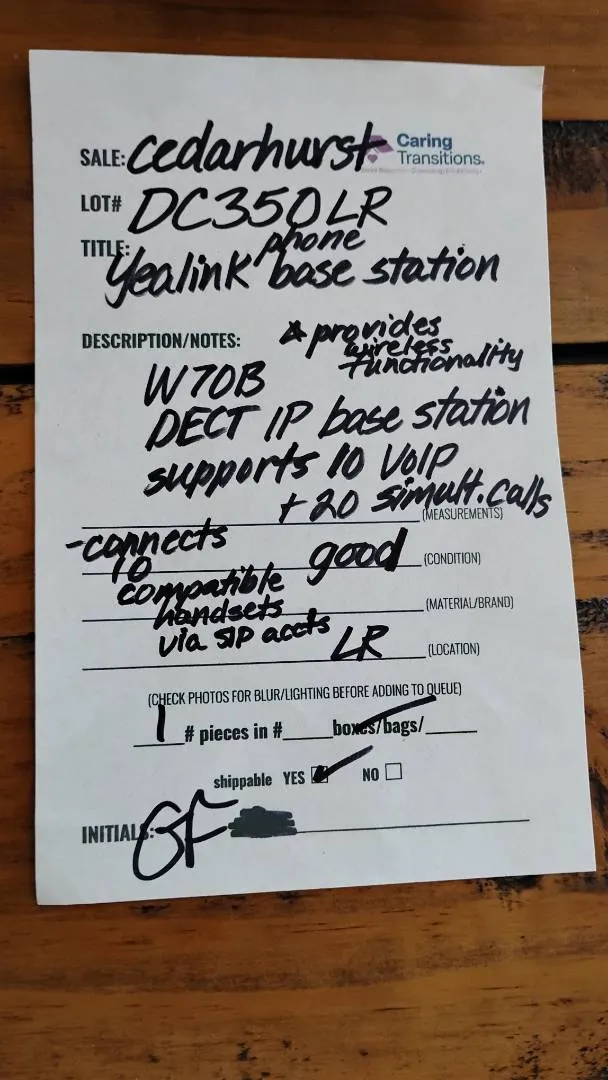 SALE: cedarhurst Caring Transitions.
LOT# DC350LR
TITLE: Yealink phone base station
DESCRIPTION/NOTES: * provides
wireless
functionality
W70B
DECT IP base station
supports 10 VoIP
+ 20 simult. calls
(MEASUREMENTS)
-connects
10
compatible
handsets
via SIP accts
good (CONDITION)
(MATERIAL/BRAND)
LR (LOCATION)
(CHECK PHOTOS FOR BLUR/LIGHTING BEFORE ADDING TO QUEUE)
1 # pieces in #_____boxes/bags/_____
shippable YES ☑ NO ☐
INITIALS: GF